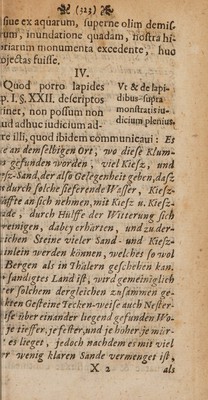 (323)
sive ex aquarum, superne olim demis-
rum, inundatione quadam, nostra hi-
oriarum monumenta excedente, huc
ojectas fuisse.
IV.
Quod porro lapides
p. I. §. XXII. descriptos
tinet, non possum non
uud adhuc iudicium ad-
re illi, quod ibidem communicaui: Es
Vt & de lapi-
dibus supra
monstratis iu-
dicium plenius.
ie an demselbigen Ort, wo diese Klum-
s gefunden worden, viel Kiesz, und
sz-Sand, der also Gelegenheit geben, dasz
durch solche siefferende Wasser, Kiesz-
äffte an sich nehmen, mit Kiesz u. Kiesz-
ade, durch Hülffe der Witterung sich
reinigen, dabey erhärten, und zu der-
ichen Steine vieler Sand- und Kiesz-
inlein werden können, welches so wol
Bergen als in Thälern geschehen kan.
sandigtes Land ist, wird gemeiniglich
er solchem dergleichen zusammen ge-
kten Gesteine Tecken-weise auch Nester-
ise über einander liegend gefunden Wo-
je tieffer, je fester, und je hoher je mür-
es lieget, jedoch nachdem er mit viel
r wenig klaren Sande vermenget ist,
X 2
als